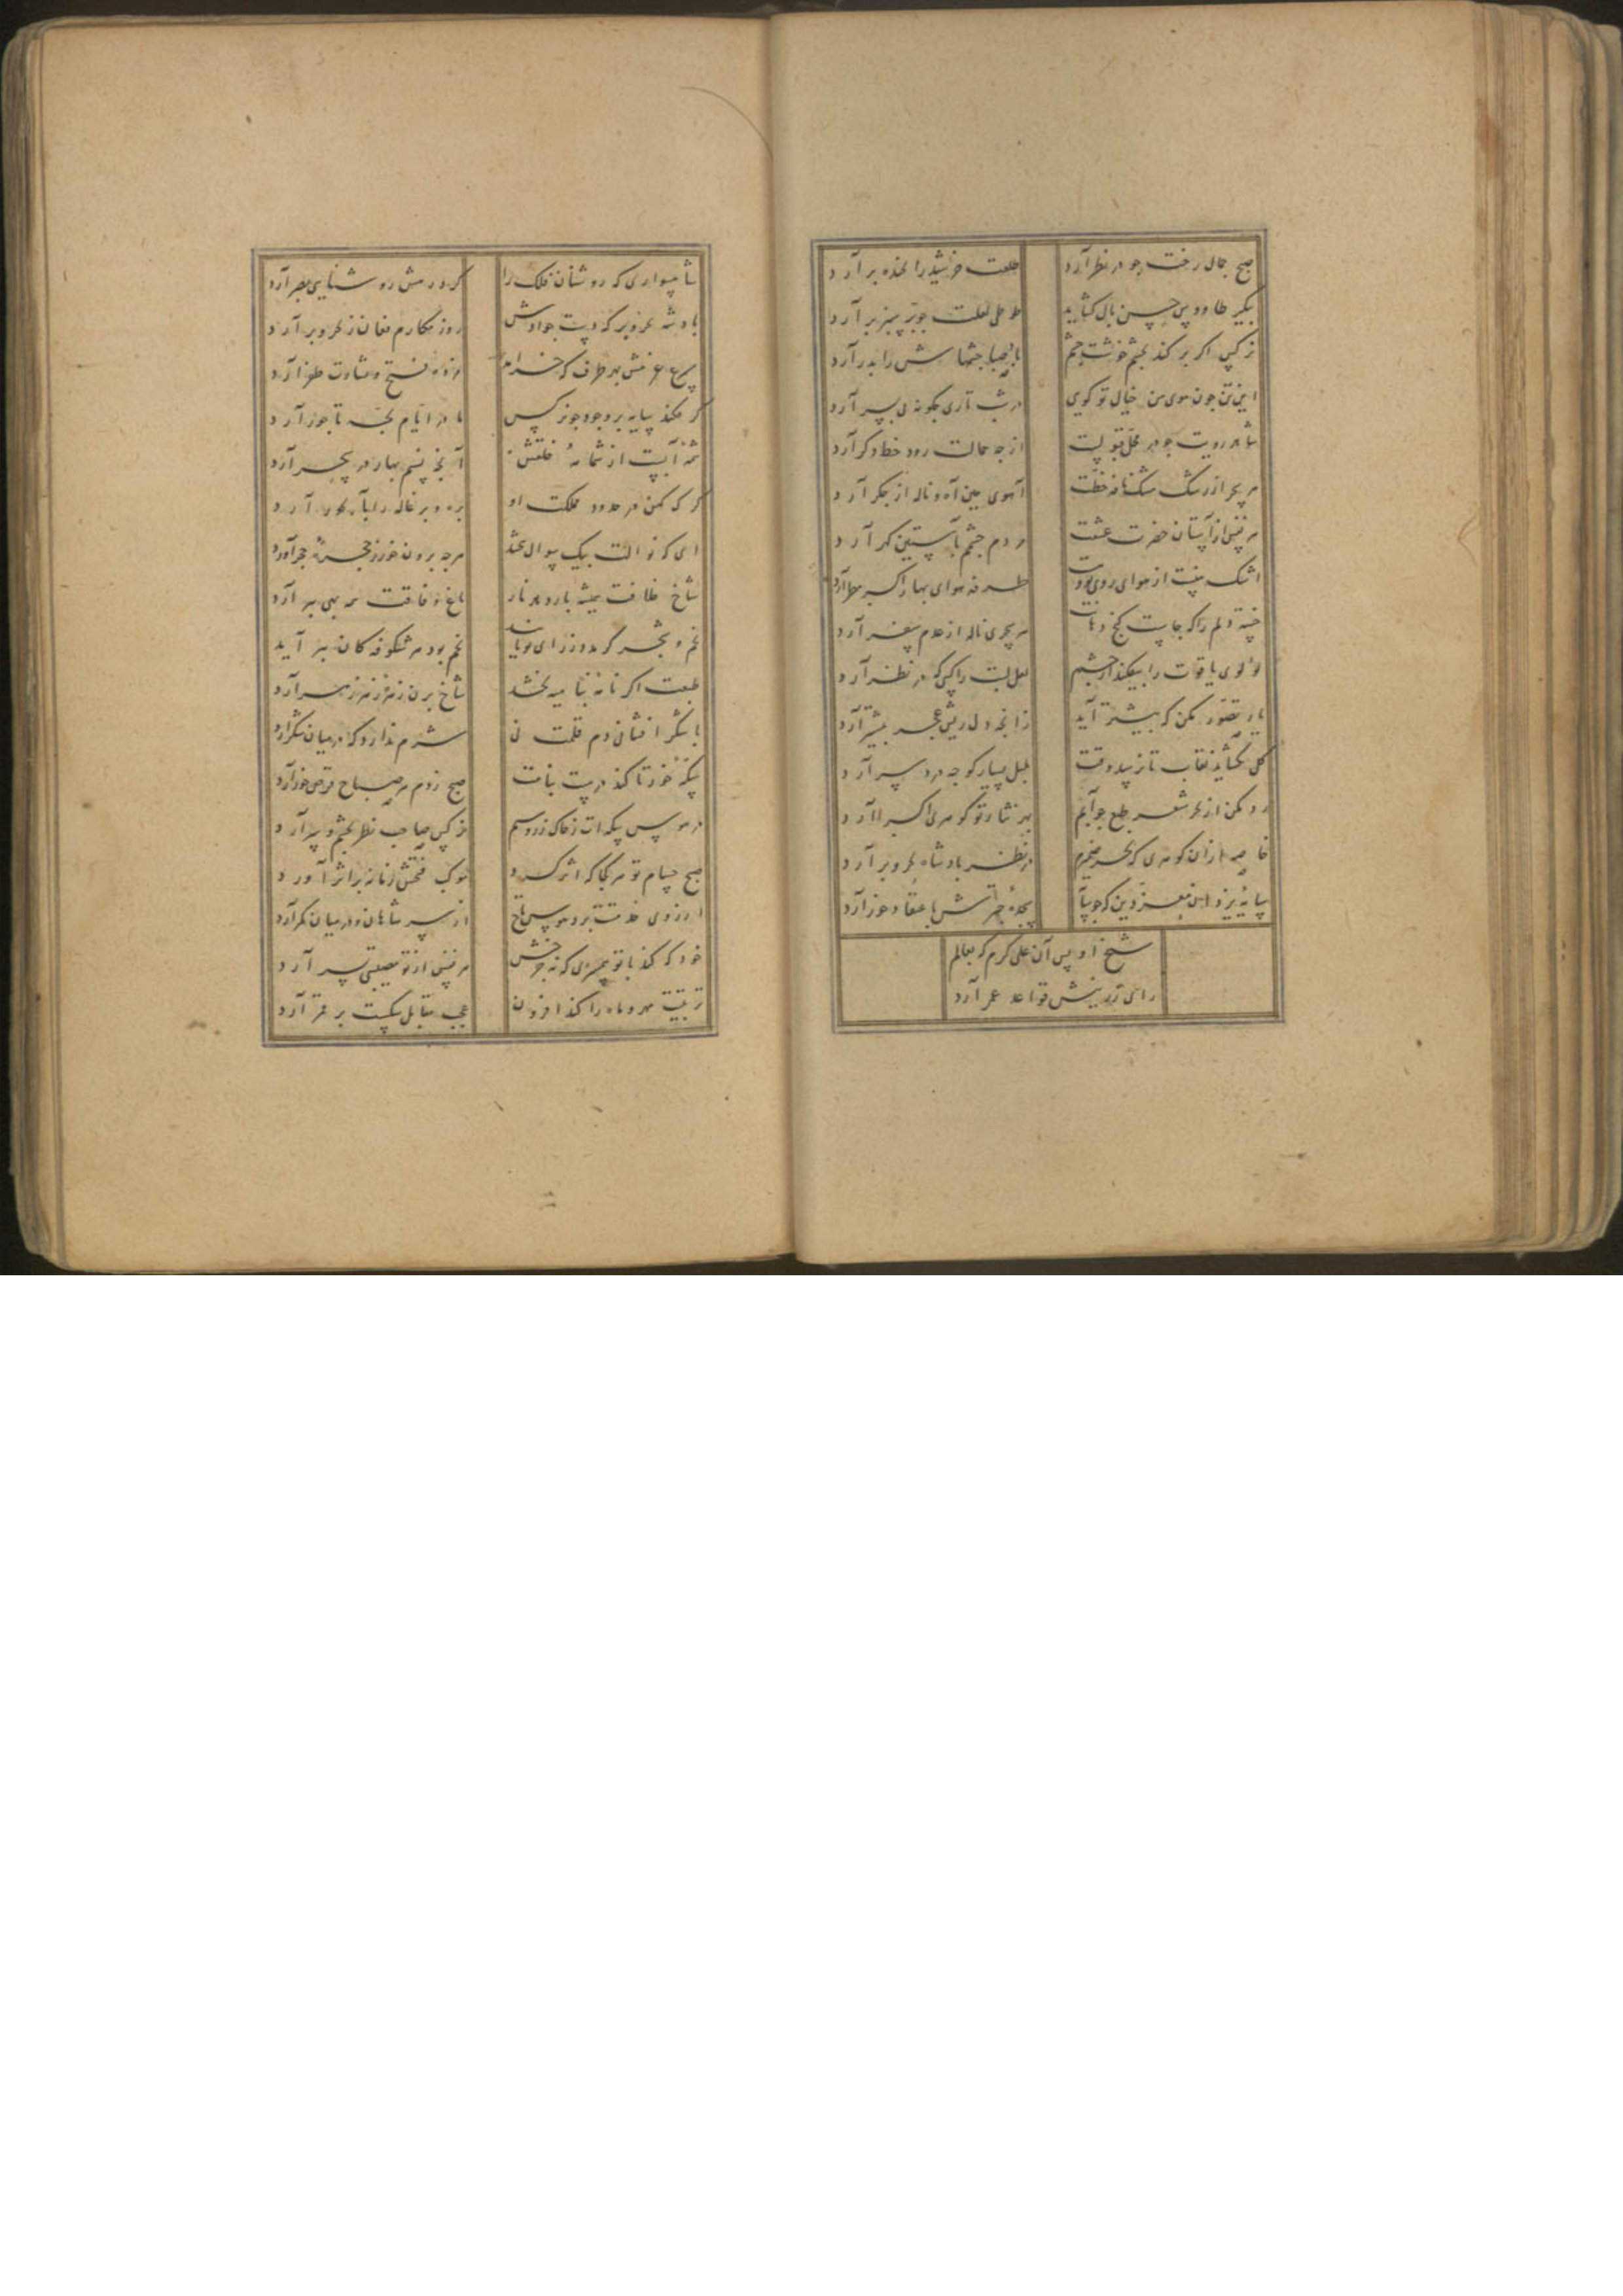 صبح جمال رخت چو در نظر آرد
طلعت خورشید را بخنده بر آرد
بگیر طاووس چین بال کشاید
طوطی لعلت چو پر بر آرد
نرکس اکر بر کند بچشم خوشت چشم
باد صبا چشمهاش را بدر آرد
این تن چون موی من خیال تو کویی
در شب تاری چکونه پی بسر آرد
شاهد رویت چو در محل قبولست
از چه حمالت رود خط دکر آرد
هر سحر از رشک مشک نافه خطت
آهوی چین آه و ناله از جکر آرد
هر نفس از آستان حضرت عشقت
مردم چشمم بآستین کهر آرد
اشک منست از هوای روی تو
طرفه هوای بهار اکر مطر آرد
خسته دلم را که جاست کنج دهانت
هر سحری ناله از عدم بسفر آرد
لولوی یاقوت را بیفکند از چشم
لعل لبت را کسی که در نظر آرد
یار تصور مکن که بیشتر آید
زانچه دل ریش بیشتر آرد
کل نکشاید نقاب تا نرسد وقت
بلبل بیمار کو چه درد سر آرد
رد مکن از بحر شعر طبع چو آبم
بهر نثار تو کوهری اکر آرد
خاصه ازان کوهری که بحر ضمیرم
در نظر بادشاه بحر و بر آرد
سایه یزدان معز دین که چو
سجده چترش باعتقاد خور آرد
شیخ اویس آن علی کرم که بعالم
رای رزینش قواعد عمر آرد
شاهسواری که روشنان فلک را
کرد رهش روشنایی بصر آرد
بادشه بحر و بر که دست جوادش
روز مکارم فغان ز بحر و بر آرد
عزمش بهر طرف که خرامد
مژده فتح و بشاوت ظفر آرد
کر فکند سایه بر وجود چو نرکس
مادر ایام بچه تاجور آرد
شمه آیست از شمامه خلقش
آنچه نسیم بهار در سحر آرد
کرک کهن در حدود مملکت او
بره و بزغاله را بآبخور آرد
ای که نوالت بیک سوال ببخشد
هرچه برون خور ز حجره حجر آورد
شاخ خلافت همیشه بار دهد نار
باغ وفاقت همه بهی ببر آرد
نجم و شجر کر مدد ز رای تو یابند
نجم بود هر شکوفه کان شجر آرد
طبعت اکر نامیه بخشد
شاخ برون زهره ز زهر آرد
با شکر افشانی دم قلمت نی
شرم ندارد که در میان شکر آرد
سکه خور تا کند درست بنامت
صبح ز دم هر صباح قرص خور آرد
در هوس سکه ات ز خاک زر و سیم
نرکس صاحب نظر بچشم و سر آرد
صبح حسام تو هر کجا که اثر کرد
موکب فتحش زمانه بر اثر آورد
آرزوی خدمتت برد هوس تاج
از سر شاهان و در میان کمر آرد
خود که کند با تو همسری که نه چرخش
هر نفس از نو مصیبتی بسر آرد
تربیت مهر و ماه را کند افزون
عیب مقابل شکست بر قمر آرد